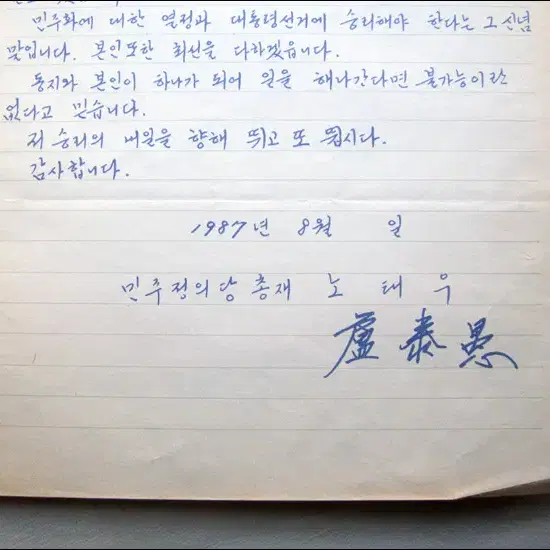 민주화에 대한 열정과 대통령선거에 승리해야 한다는 그 신념
말입니다. 본인또한 최선을 다하겠읍니다.
동지와 본인이 하나가 되어 일을 해나간다면 불가능이란
없다고 믿습니다.
저 승리의 내일을 향해 뛰고 또 뜁시다.
감사합니다.
1987년 8월 일
민주정의당 총재 노 태 우
盧泰愚